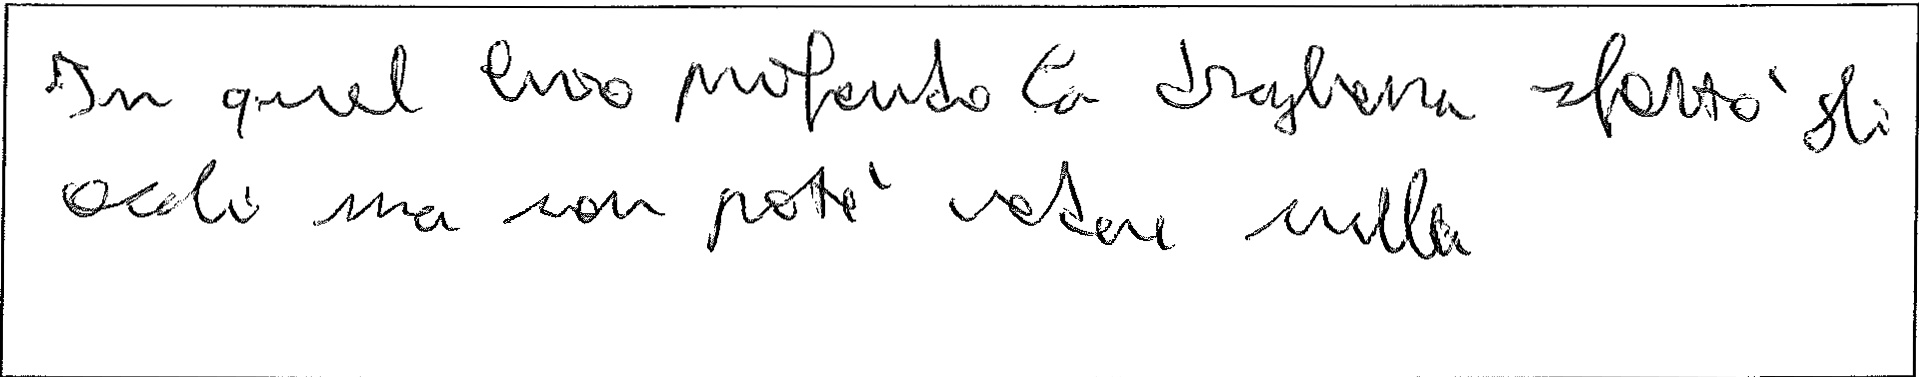 In quel buio profondo la draghessa spostò gli
occhi ma non poté vedere nulla